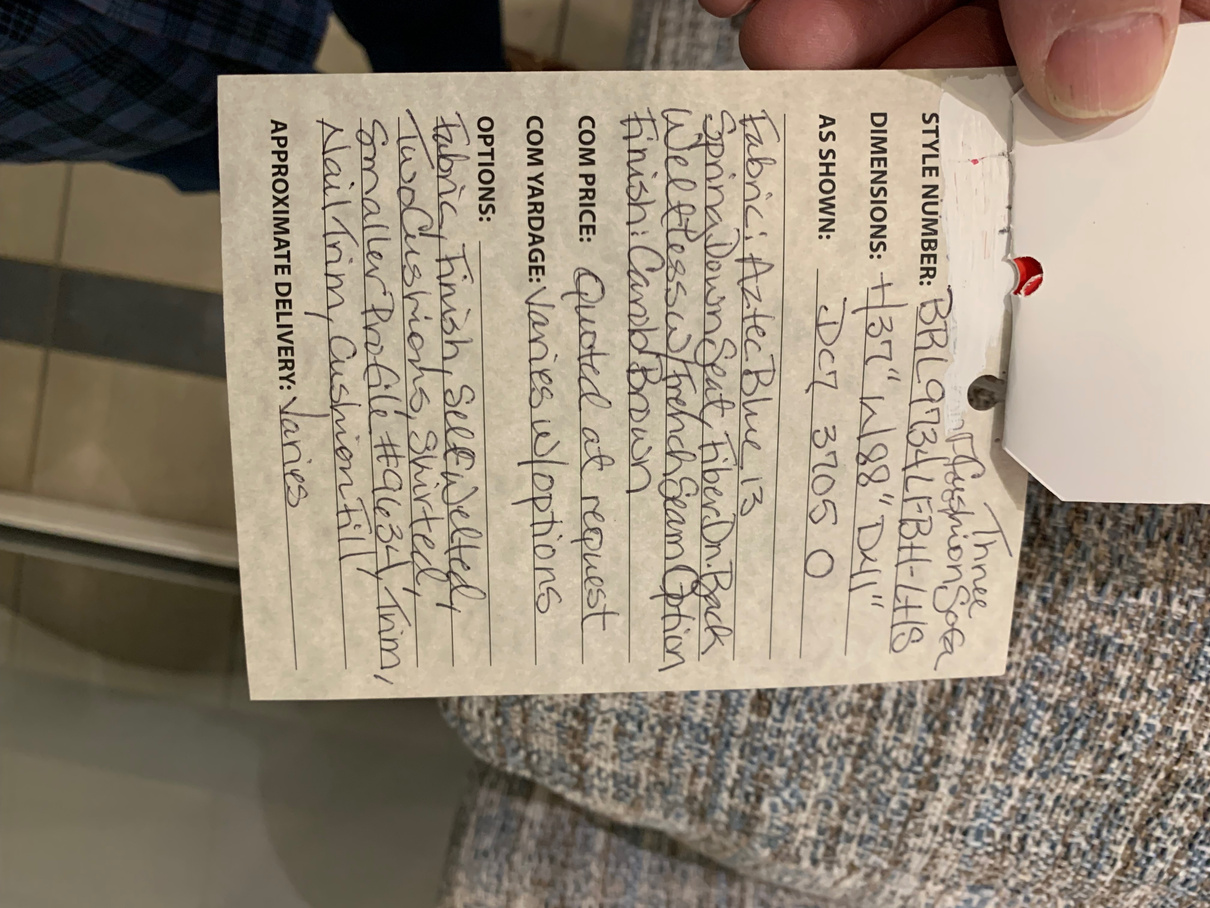 Three
Cushion Sofa
STYLE NUMBER: BRL9734LF-BH-LHS
DIMENSIONS: H37" W88" D41"
AS SHOWN: Dc7 3705 0
Fabric: Aztec Blue 13
Spring Down Seat, Fiber Dn. Back
Weltless w/French Seam Option
Finish: Carob Brown
COM PRICE: Quoted at request
COM YARDAGE: Varies w/options
OPTIONS:
Fabric, Finish, Self Welted,
Two Cushions, Skirted,
Smaller Profile #9634, Trim,
Nail Trim, Cushion Fill
APPROXIMATE DELIVERY: Varies